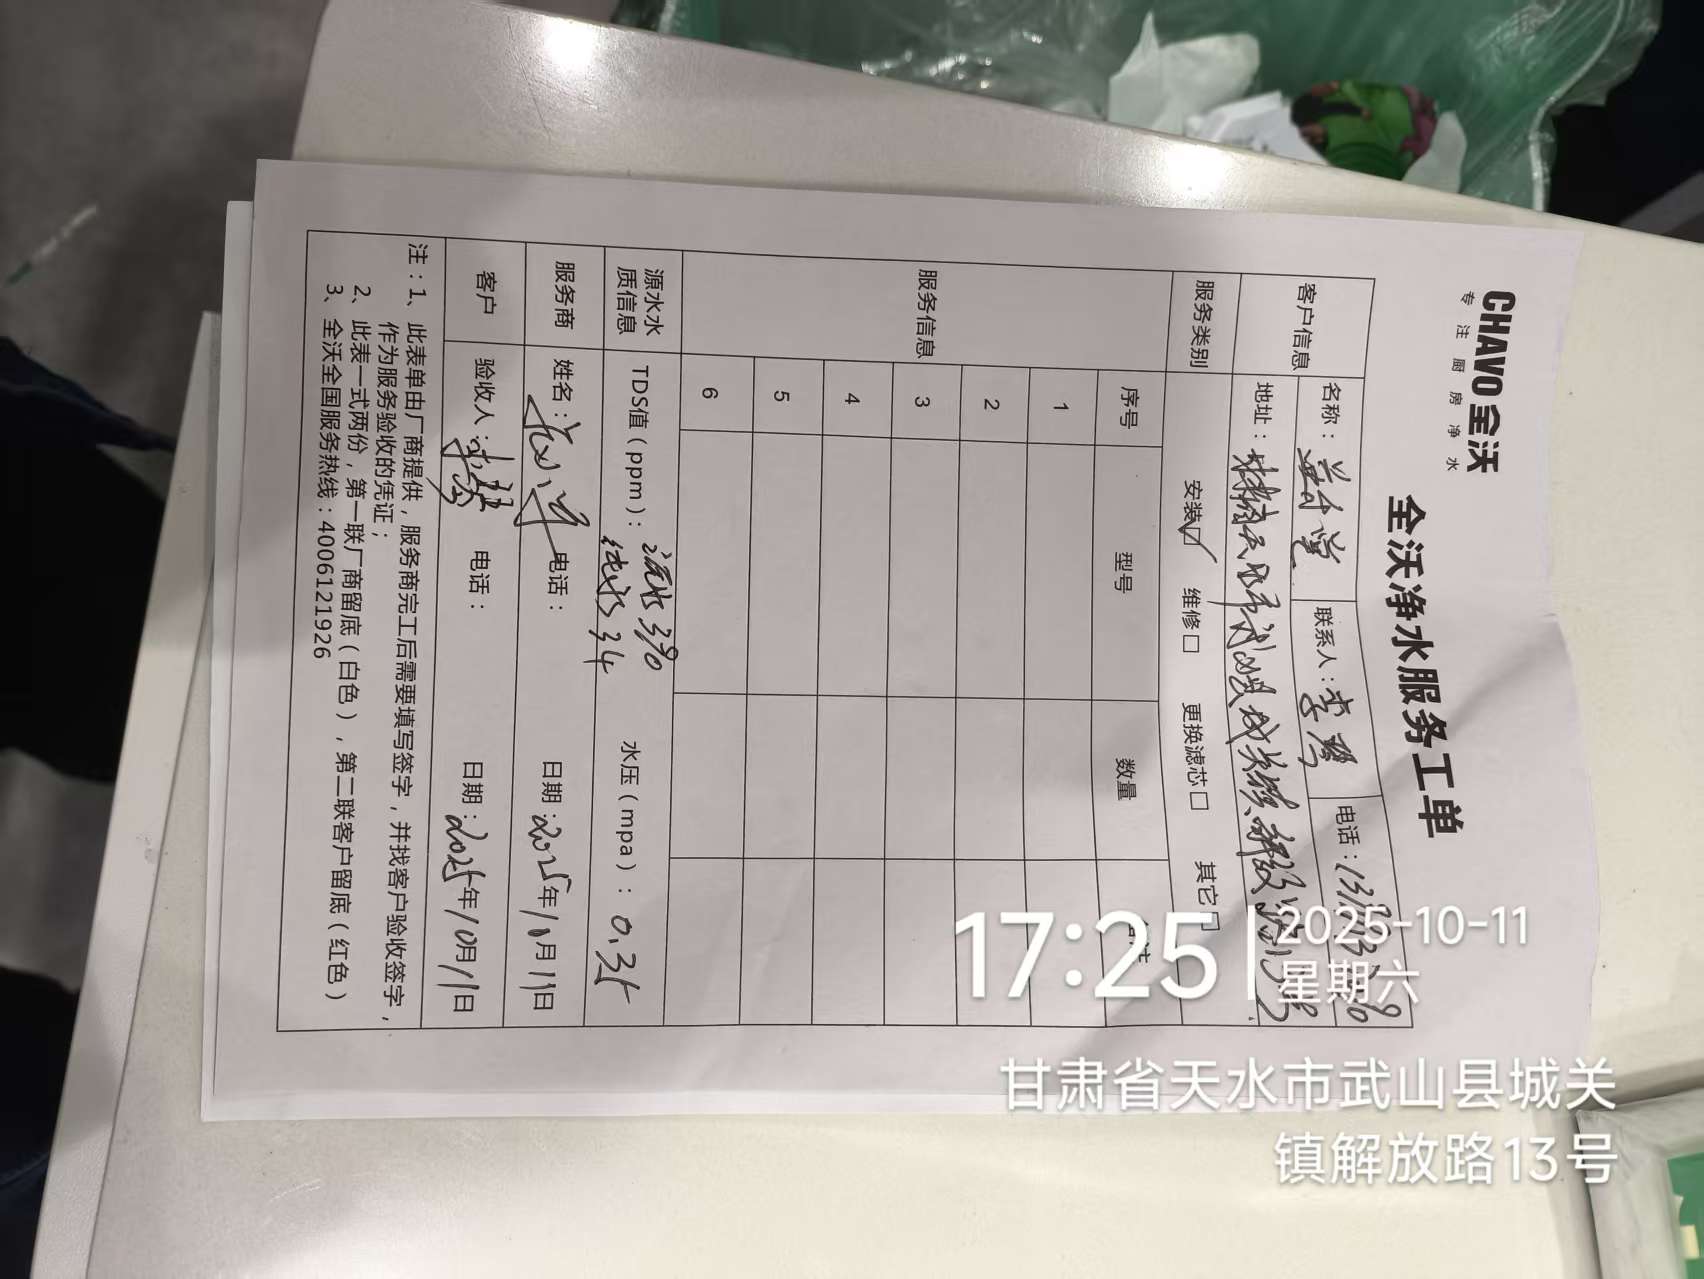 CHAVO 全沃
专注厨房净水
全沃净水服务工单
客户信息
名称：
联系人：李
电话：
地址：甘肃省天水市武山县城关镇解放路13号
服务类别
安装☑ 维修□ 更换滤芯□ 其它□
服务信息
序号 型号 数量 备注
1
2
3
4
5
6
源水水质信息
TDS值（ppm）：源水390
纯水34
水压（mpa）：0.35
服务商
姓名： 电话： 日期：2025年10月11日
客户
验收人： 电话： 日期：2025年10月11日
注：1、此表单由厂商提供，服务商完工后需要填写签字，并找客户验收签字，
作为服务验收的凭证；
2、此表一式两份，第一联厂商留底（白色），第二联客户留底（红色）
3、全沃全国服务热线：4006121926
17:25
2025-10-11
星期六
甘肃省天水市武山县城关
镇解放路13号